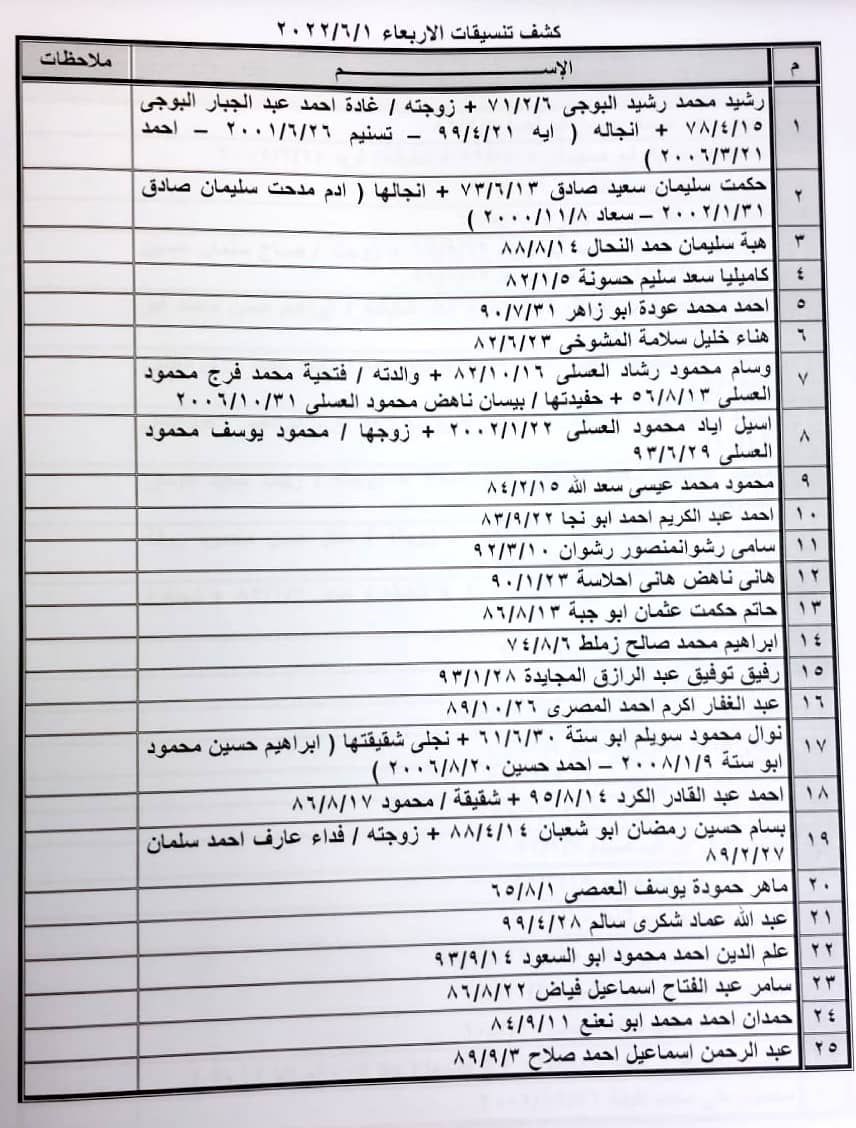 كشف تنسيقات الاربعاء ٢٠٢٢/٦/١
م الإســـــــــم ملاحظات
١ رشيد محمد رشيد البوجى ٧١/٢/٦ + زوجته / غادة احمد عبد الجبار البوجى
٧٨/٤/١٥ + انجاله ( ايه ٩٩/٤/٢١ – تسنيم ٢٠٠١/٦/٢٦ – احمد
٢٠٠٦/٣/٢١ )
٢ حكمت سليمان سعيد صادق ٧٣/٦/١٣ + انجالها ( ادم مدحت سليمان صادق
٢٠٠٢/١/٣١ – سعاد ٢٠٠٠/١١/٨ )
٣ هبة سليمان حمد النحال ٨٨/٨/١٤
٤ كاميليا سعد سليم حسونة ٨٢/١/٥
٥ احمد محمد عودة ابو زاهر ٩٠/٧/٣١
٦ هناء خليل سلامة المشوخى ٨٢/٦/٢٣
٧ وسام محمود رشاد العسلى ٨٢/١٠/١٦ + والدته / فتحية محمد فرج محمود
العسلى ٥٦/٨/١٣ + حفيدتها / بيسان ناهض محمود العسلى ٢٠٠٦/١٠/٣١
٨ اسيل اياد محمود العسلى ٢٠٠٢/١/٢٢ + زوجها / محمود يوسف محمود
العسلى ٩٣/٦/٢٩
٩ محمود محمد عيسى سعد الله ٨٤/٢/١٥
١٠ احمد عبد الكريم احمد ابو نجا ٨٣/٩/٢٢
١١ سامى رشوانمنصور رشوان ٩٢/٣/١٠
١٢ هانى ناهض هانى احلاسة ٩٠/١/٢٣
١٣ حاتم حكمت عثمان ابو جبة ٨٦/٨/١٣
١٤ ابراهيم محمد صالح زملط ٧٤/٨/٦
١٥ رفيق توفيق عبد الرازق المجايدة ٩٣/١/٢٨
١٦ عبد الغفار اكرم احمد المصرى ٨٩/١٠/٢٦
١٧ نوال محمود سويلم ابو ستة ٦١/٦/٣٠ + نجلى شقيقتها ( ابراهيم حسين محمود
ابو ستة ٢٠٠٨/١/٩ – احمد حسين ٢٠٠٦/٨/٢٠ )
١٨ احمد عبد القادر الكرد ٩٥/٨/١٤ + شقيقة / محمود ٨٦/٨/١٧
١٩ بسام حسين رمضان ابو شعبان ٨٨/٤/١٤ + زوجته / فداء عارف احمد سلمان
٨٩/٢/٢٧
٢٠ ماهر حمودة يوسف العمصى ٦٥/٨/١
٢١ عبد الله عماد شكرى سالم ٩٩/٤/٢٨
٢٢ علم الدين احمد محمود ابو السعود ٩٣/٩/١٤
٢٣ سامر عبد الفتاح اسماعيل فياض ٨٦/٨/٢٢
٢٤ حمدان احمد محمد ابو نعنع ٨٤/٩/١١
٢٥ عبد الرحمن اسماعيل احمد صلاح ٨٩/٩/٣